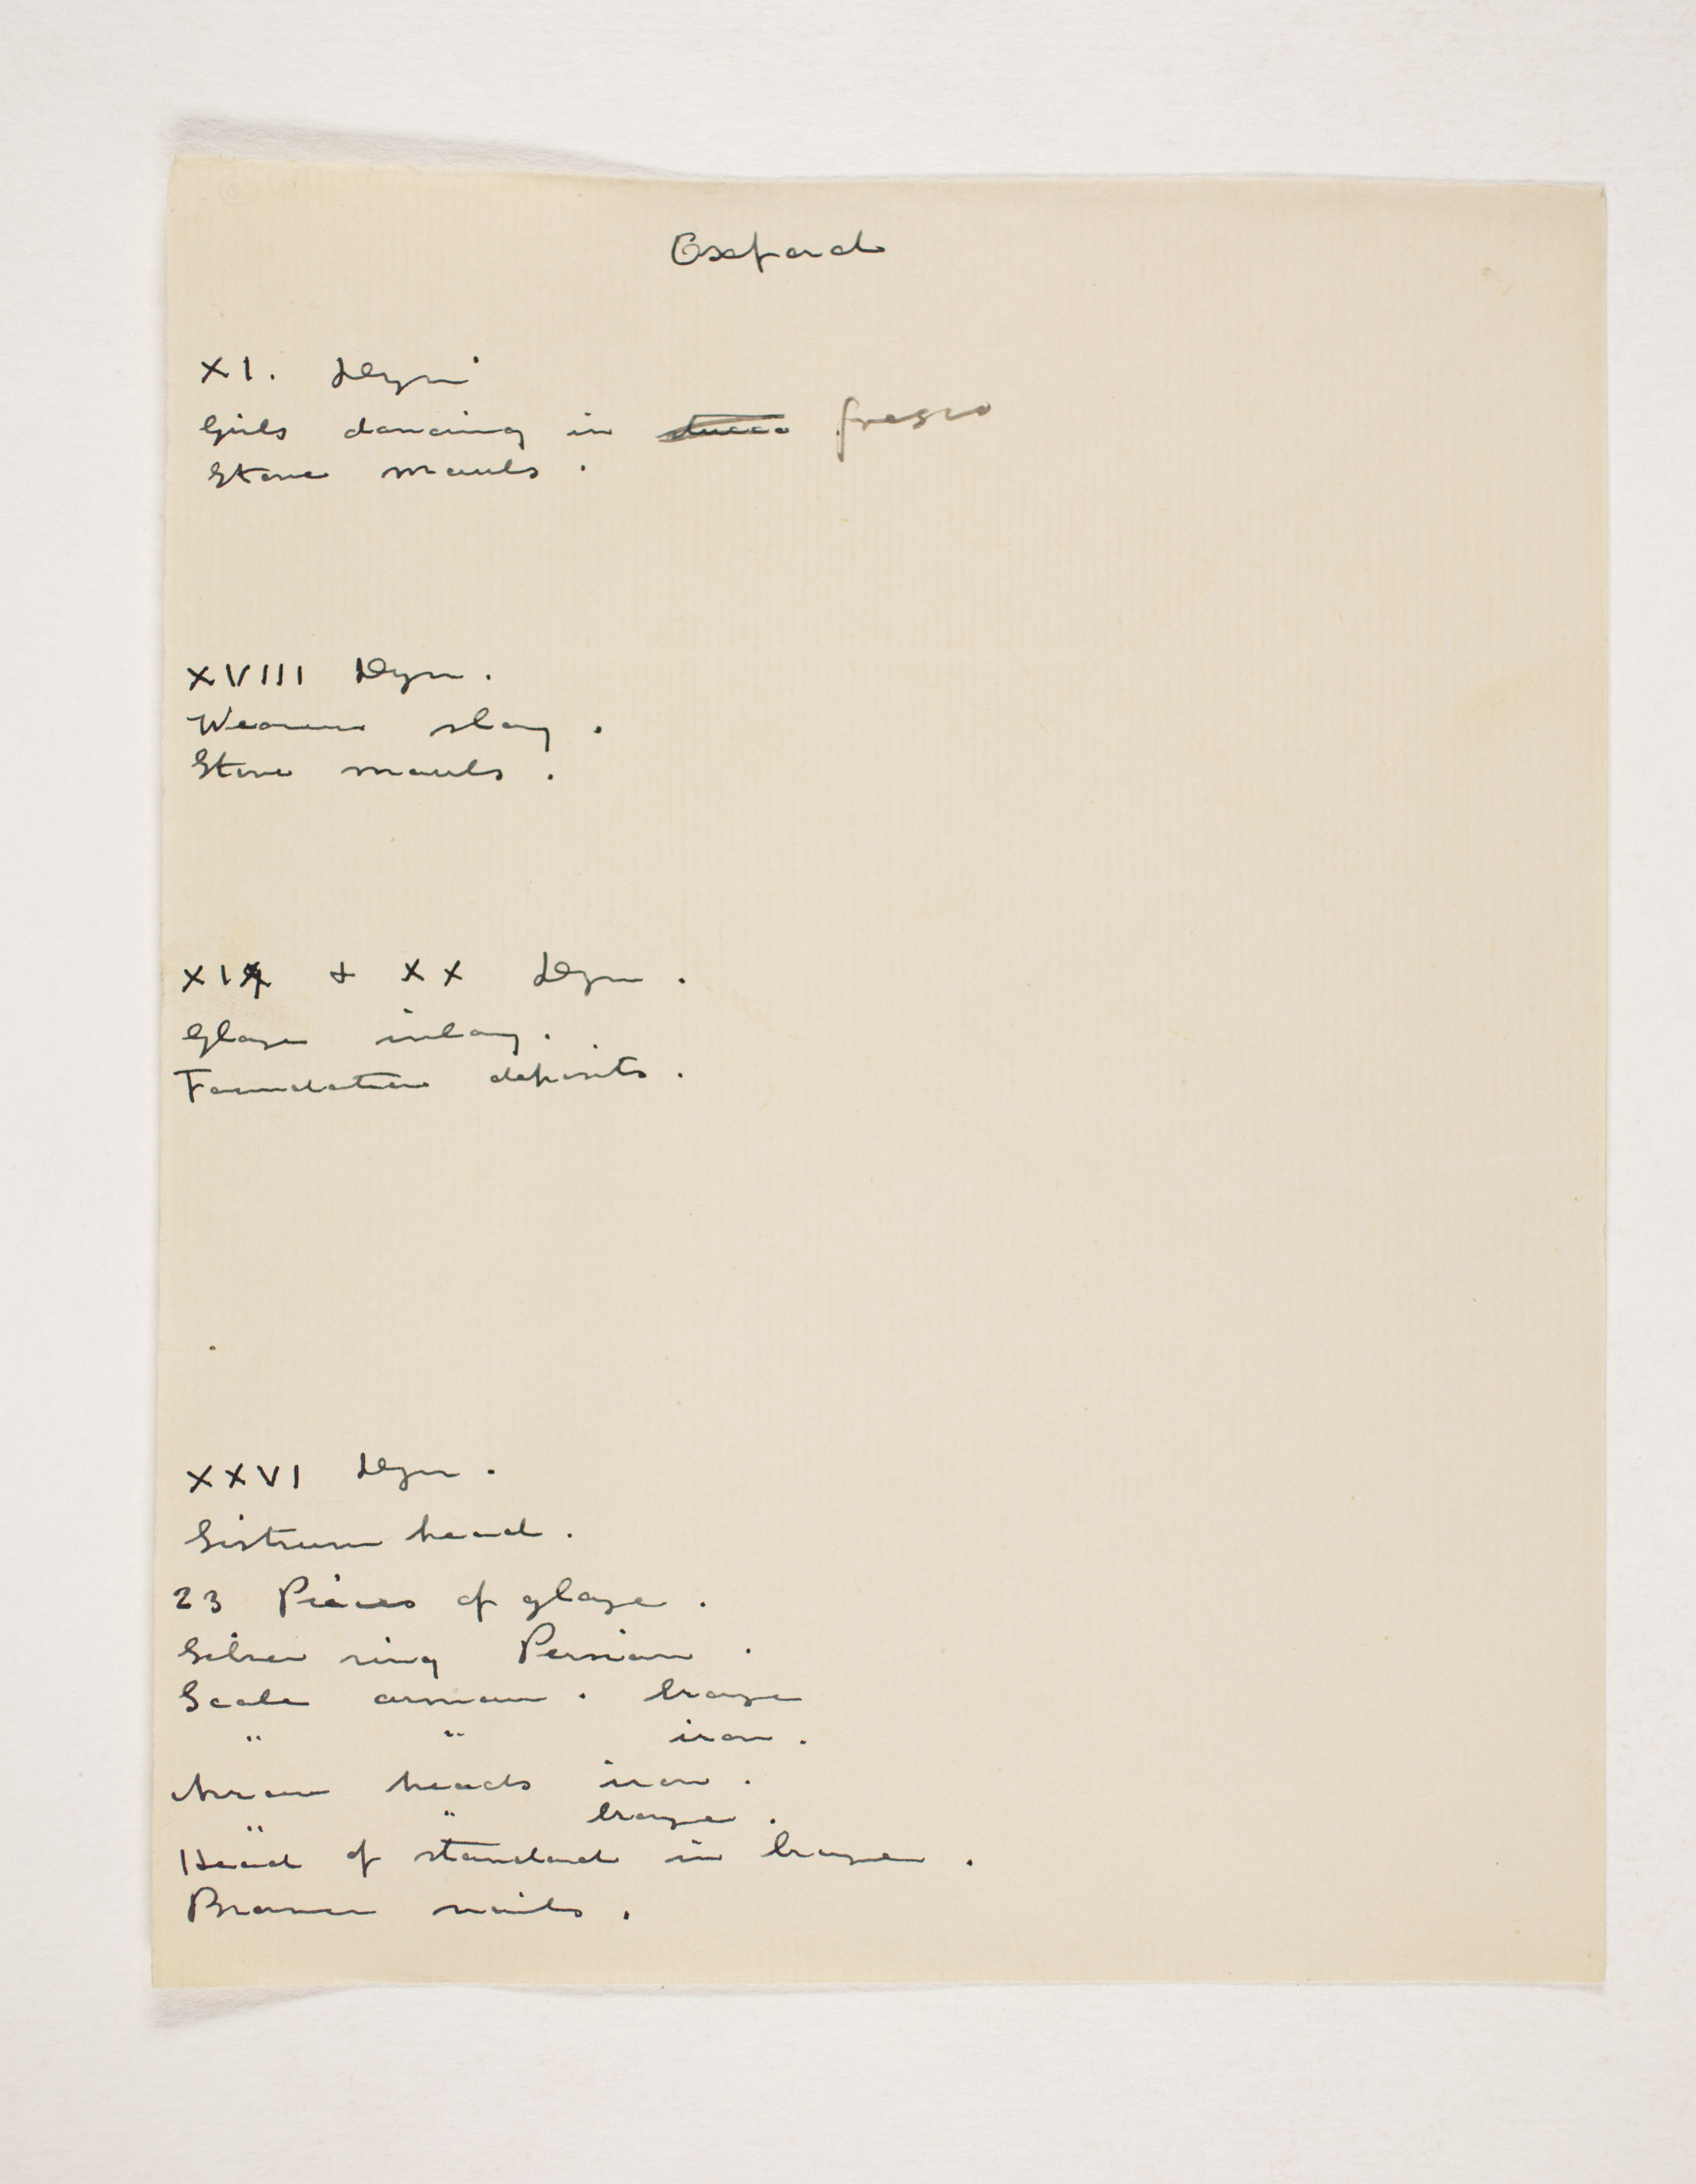 Oxford
XI. Dyn.
Girls dancing in stucco fresco
Stone mauls.
XVIII Dyn.
Weavers slay.
Stone mauls.
XIX + XX Dyn.
Glaze inlay.
Foundation deposits.
XXVI Dyn.
Sistrum head.
23 Pieces of glaze.
Silver ring Persian.
Scale armour. bronze
" " iron.
Arrow heads iron.
" " bronze.
Head of standard in bronze.
Bronze nails.